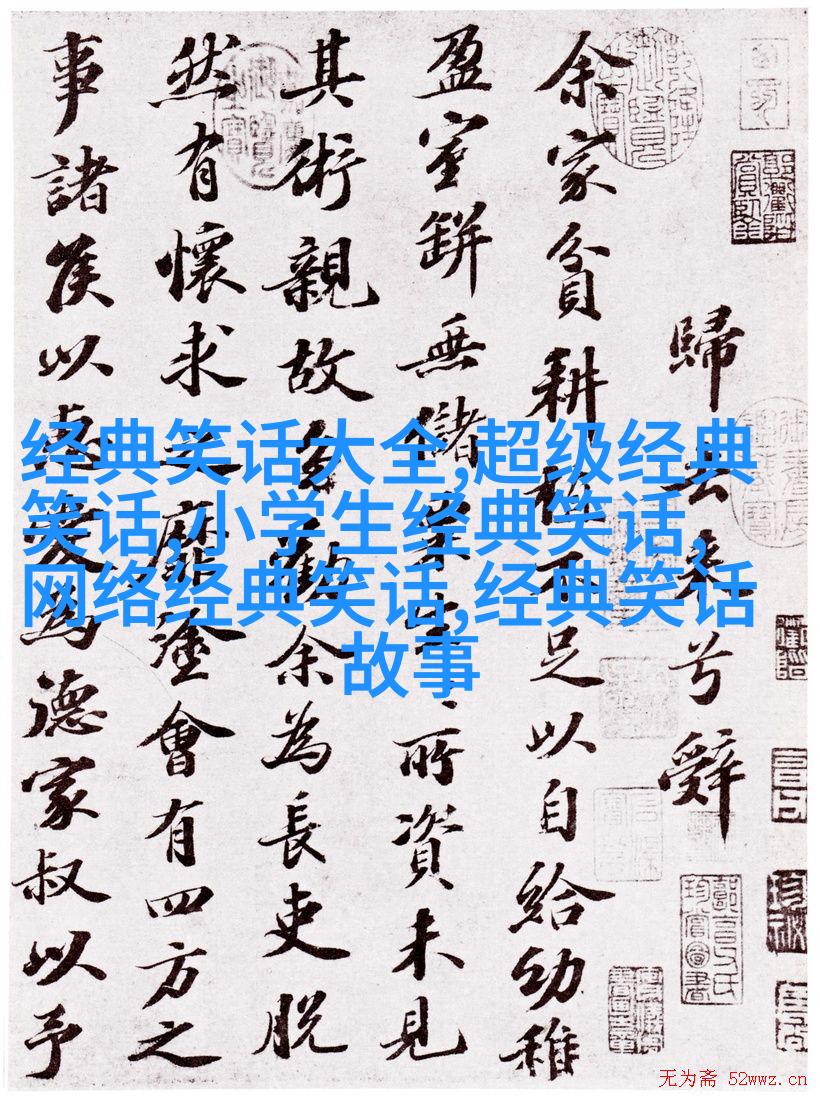 歸去來兮辭
余家貧耕植不足以自給幼稚
盈室缾無儲粟生〻所資未見
其術親故多勸余為長吏脫
然有懷求之靡塗會有四方之
事諸侯以惠愛為德家叔以予
经典笑话大全,超级经典
笑话,小学生经典笑话,
网络经典笑话,经典笑话
故事
无为斋 52wwz.cn